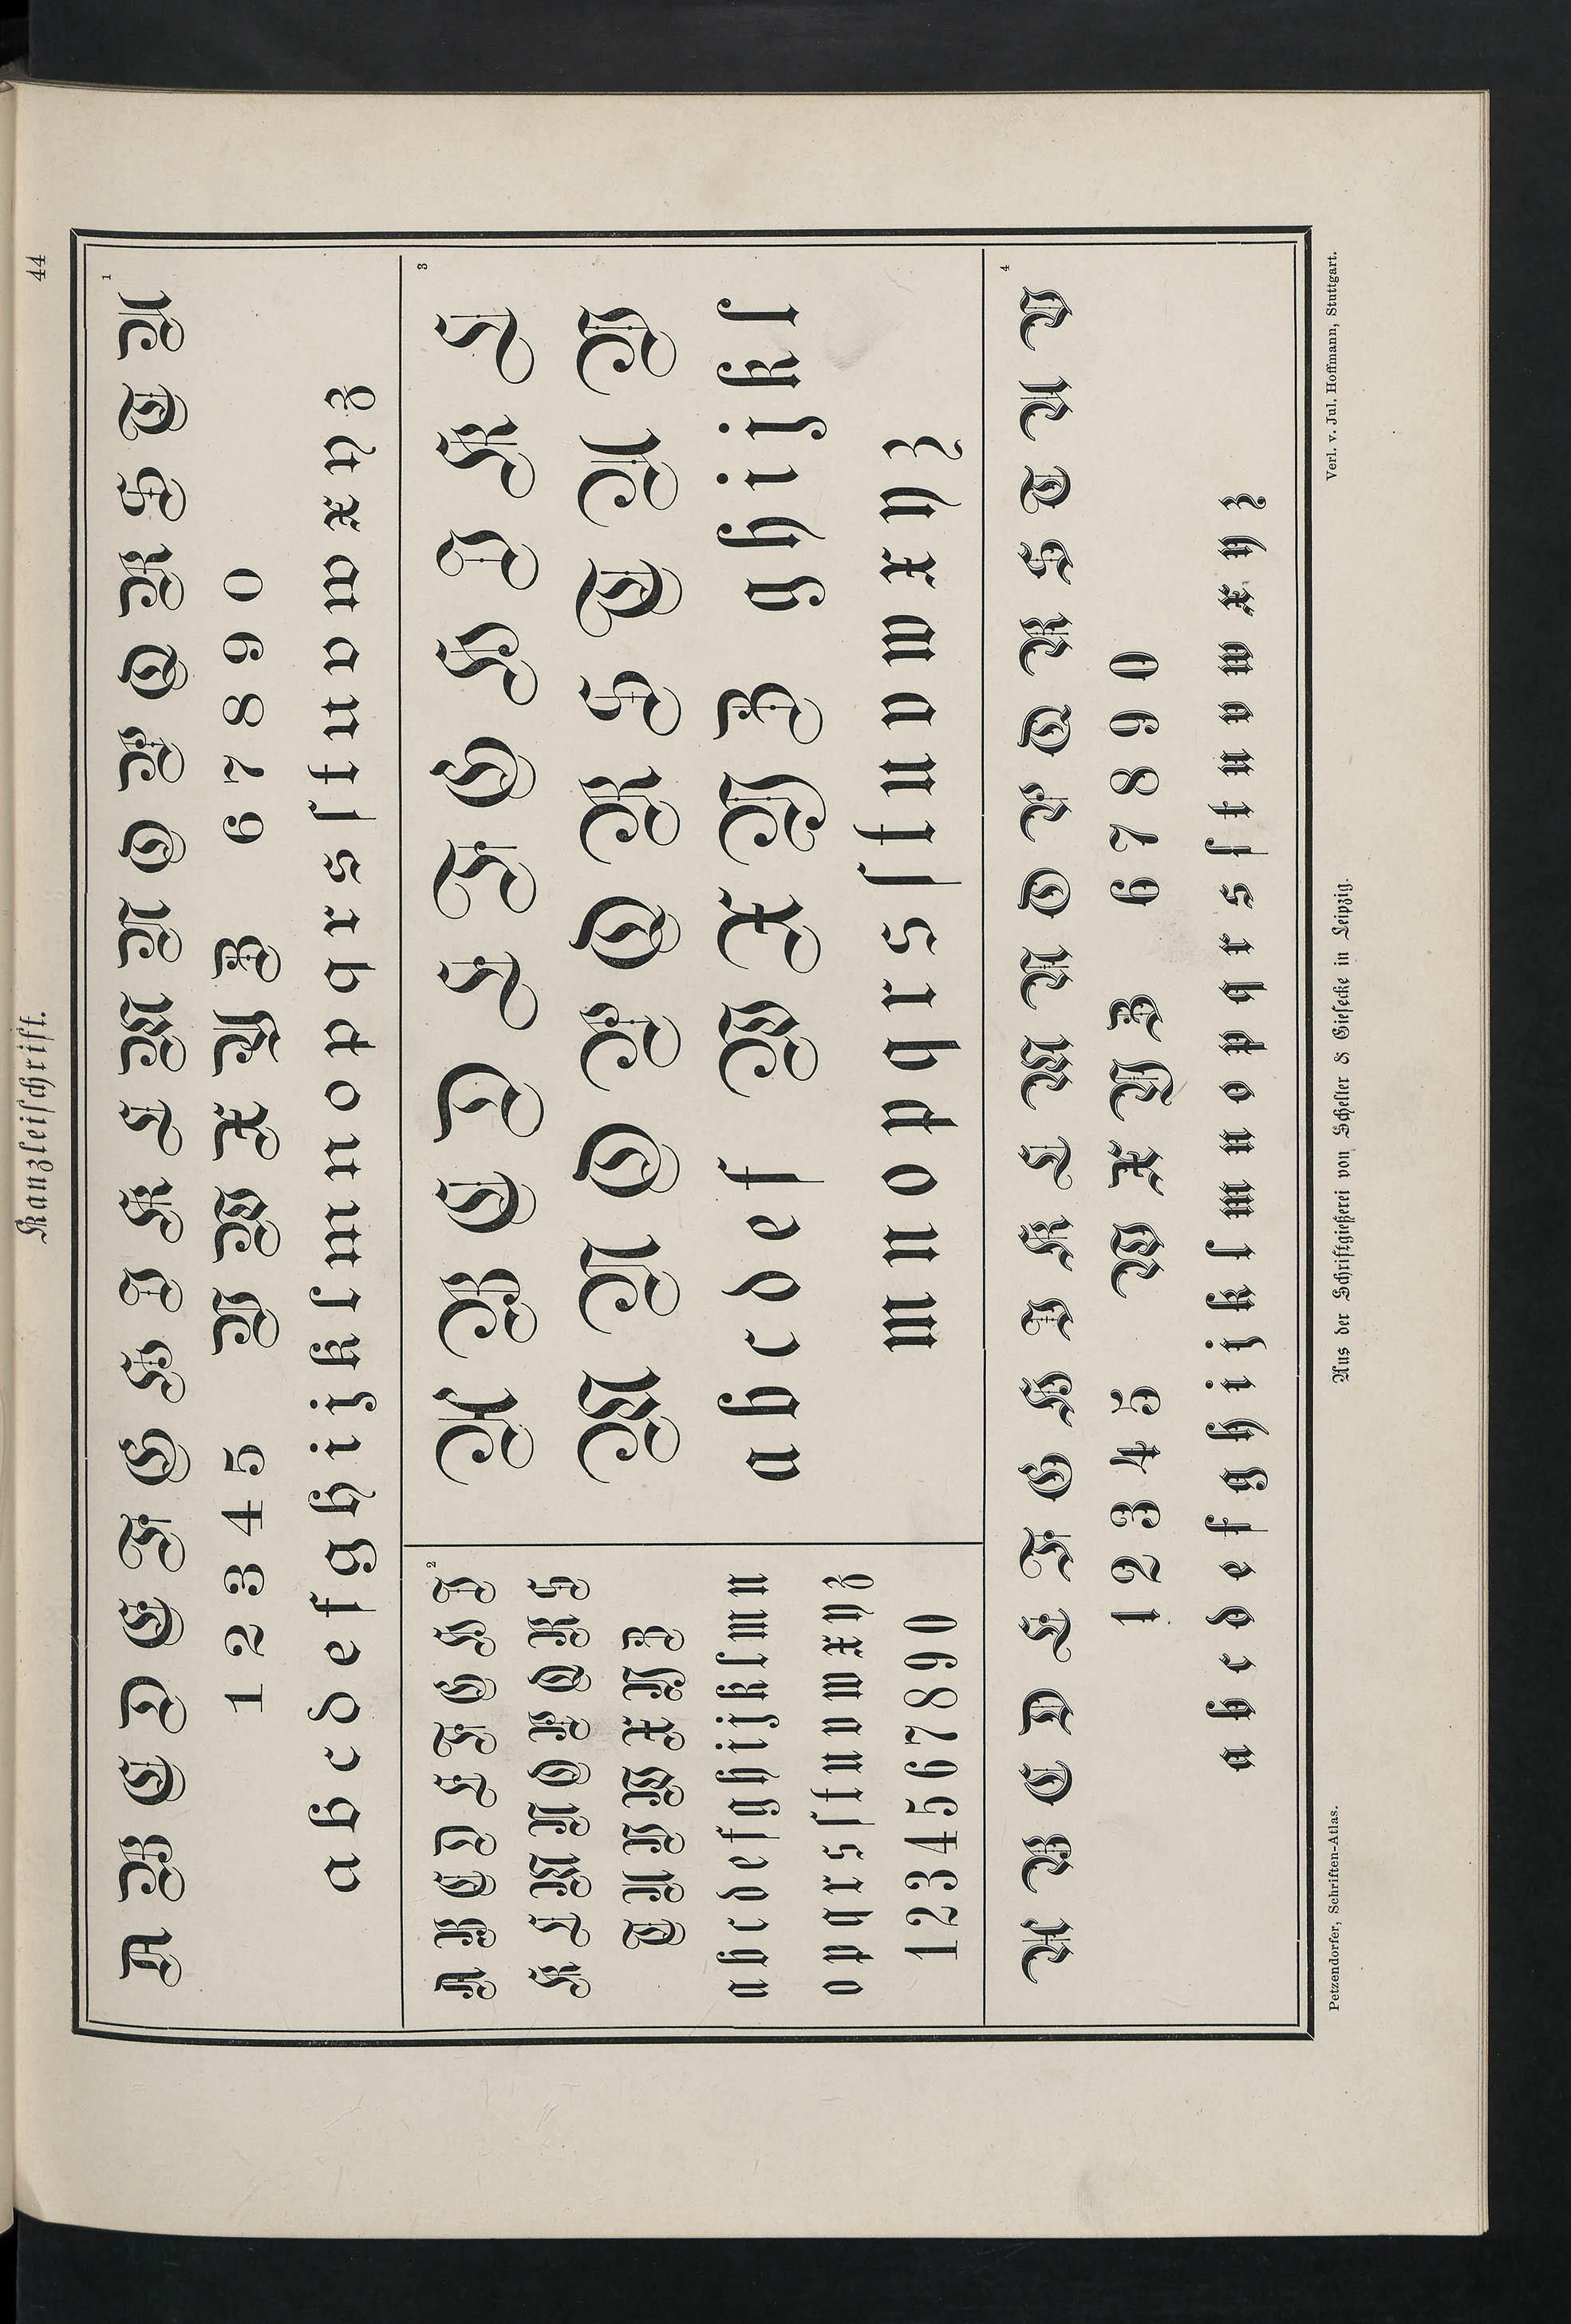 44
Kanzleiſchrift.
1
A B C D E F G H I K L M N O P Q R S T U
1 2 3 4 5 V W X Y Z 6 7 8 9 0
a b c d e f g h i j k l m n o p q r s ſ t u v w x y z
2
A B C D E F G H I
K L M N O P Q R S
T U V W X Y Z
a b c d e f g h i j k l m n
o p q r s ſ t u v w x y z
1 2 3 4 5 6 7 8 9 0
3
A B C D E F G H I K L
M N O P Q R S T U V
a b c d e f W X Y Z g h i j k l
m n o p q r s ſ t u v w x y z
4
A B C D E F G H I K L M N O P Q R S T U V
1 2 3 4 5 W X Y Z 6 7 8 9 0
a b c d e f g h i j k l m n o p q r s ſ t u v w x y z
Petzendorfer, Schriften-Atlas.
Aus der Schriftgießerei von Schelter & Gieſecke in Leipzig.
Verl. v. Jul. Hoffmann, Stuttgart.